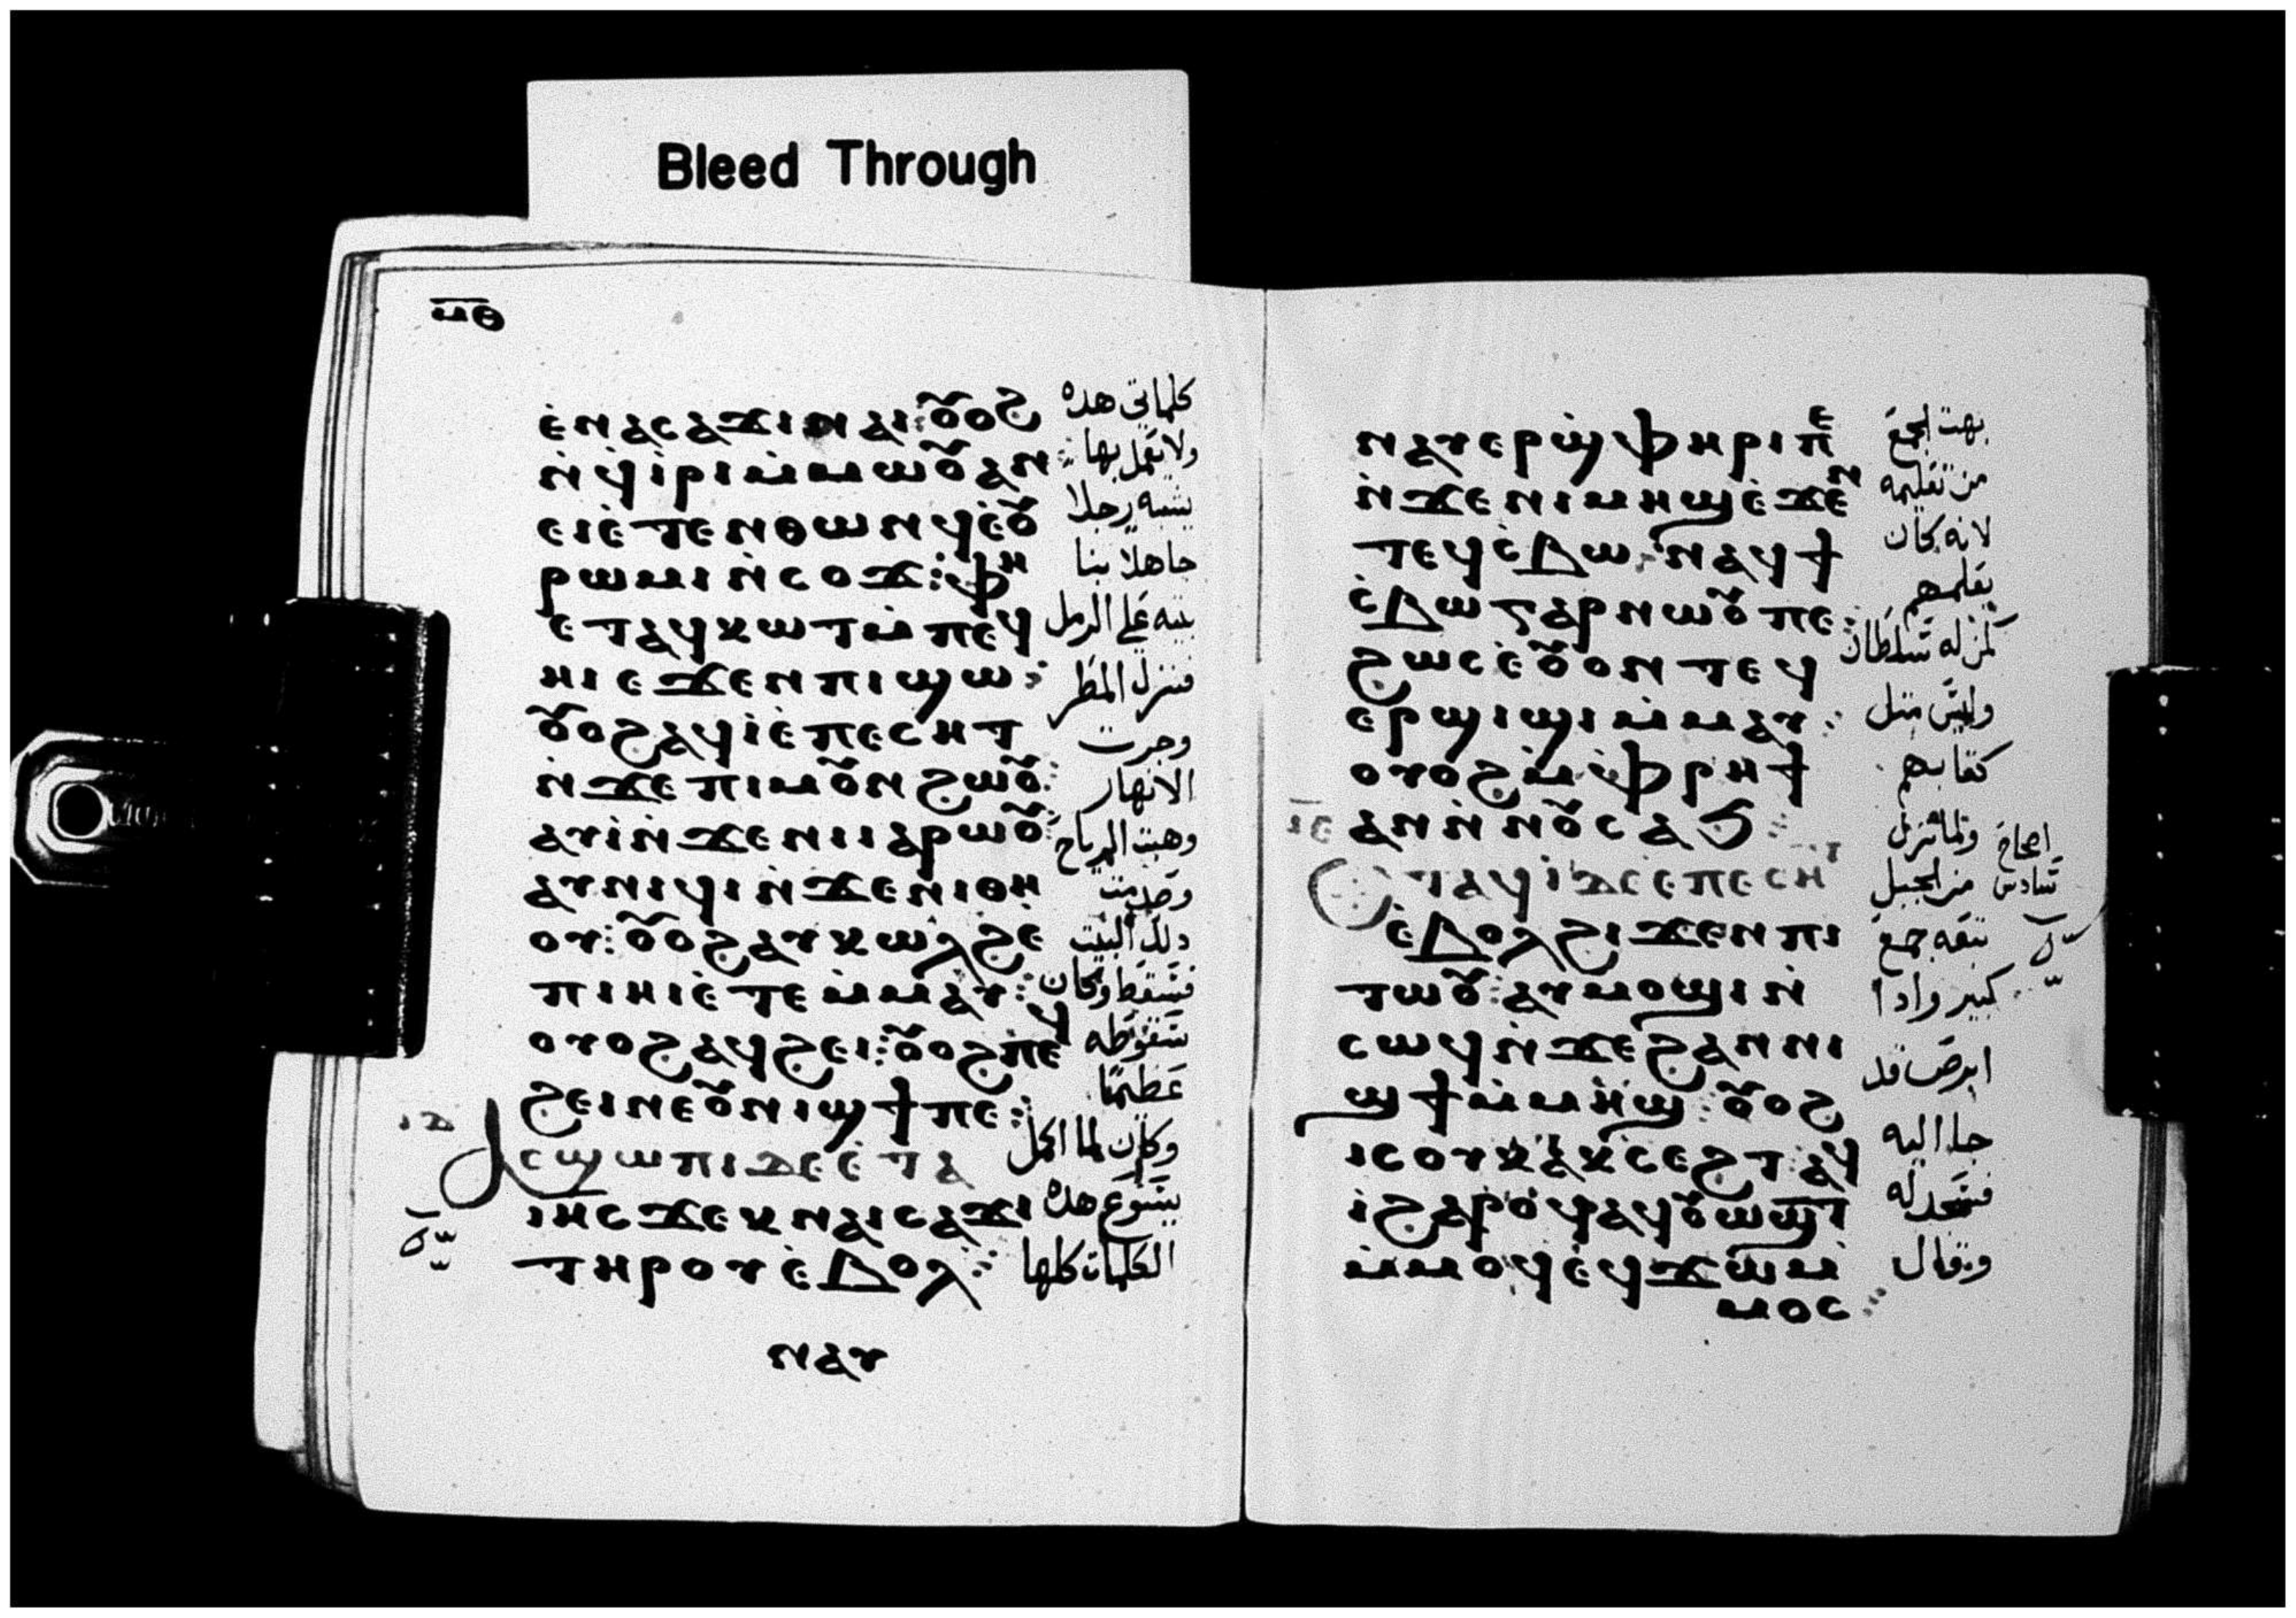 Bleed Through
ⲙ̅ⲑ̅
ⲉ̀ⲛⲁⲥⲁϫⲓⲛⲁⲓ: ⲟⲩⲟϩ
كلماتي هده
ⲛ̀ϥ̀ⲓ̀ⲣⲓ ⲙ̀ⲙⲱⲟⲩ ⲁⲛ:
ولا يعمل بها
ⲉⲓⲉ̀ⲧⲉⲛⲑⲱⲛϥ ⲉ̀ⲟⲩ
يشبه رجلا
ⲣⲱⲙⲓ ⲛ̀ⲥⲟϫ: ⲫⲏ
جاهلا بنا
ⲉⲧⲁϥⲕⲱⲧ ⲙ̀ⲡⲉϥ
بيته علي الرمل
ⲏⲓ ⲉϫⲉⲛ ⲡⲓϣⲱ:
فنزل المطر
ⲟⲩⲟϩ ⲁϥⲓ̀ ⲉ̀ⲡⲉⲥⲏⲧ
وجرت
ⲛ̀ϫⲉ ⲡⲓⲙⲟⲩⲛϩⲱⲟⲩ:
الانهار
ⲁⲩⲓ̀ ⲛ̀ϫⲉ ⲛⲓⲓⲁⲣⲱⲟⲩ:
وهبت الرياح
ⲁⲩⲛⲓϥⲓ ⲛ̀ϫⲉ ⲛⲓⲑⲏ
وصدمت
ⲟⲩ: ⲟⲩⲟϩ ⲁⲩⲕⲱⲗϩ ⲉ̀
دلك البيت
ⲡⲓⲏⲓ ⲉ̀ⲧⲉⲙ̀ⲙⲁⲩ:
فسقط وكان
ⲟⲩⲟϩ ⲁϥϩⲉⲓ: ⲟⲩⲟϩ ⲡⲉϥ
سقوطه
ϩⲉⲓ ⲛⲉⲟⲩⲛⲓϣϯ ⲡⲉ:
عظيما
ⲓⲇ
ⲁⲥϣⲱⲡⲓ ⲇⲉ ⲉ̀ⲧⲁ
وكان لما اكمل
ⲓⲏⲥ ϫⲉⲕ ⲛⲁⲓⲥⲁϫⲓ
يسوع هده
ⲧⲏⲣⲟⲩ ⲉ̀ⲃⲟⲗ:
الكلمات كلها
ⲛⲁⲩ
ⲛⲁⲩⲉⲣϣ̀ⲫⲏⲣⲓ ⲡⲉ
بهت الجمع
ⲛ̀ϫⲉ ⲛⲓⲙⲏϣ ⲉ̀ϫⲉⲛ
من تعليمه
ⲧⲉϥⲥ̀ⲃⲱ: ⲛⲁϥϯ
لانه كان
ⲥ̀ⲃⲱ ⲅⲁⲣ ⲛⲱⲟⲩ ⲡⲉ:
يعلمهم
ϩⲱⲥ ⲉ̀ⲟⲩⲟⲛ ⲧⲉϥ
كمن له سلطان
ⲉⲣϣⲓϣⲓ ⲙ̀ⲙⲁⲩ:
وليس مثل
ⲟⲩⲟϩ ⲙ̀ⲫ̀ⲣⲏϯ
كتابهم
ⲓⲉ
ⲁⲛ ⲛ̀ⲛⲟⲩⲥⲁϧ:
ولما نزل
اصحاح
ⲉⲧⲁϥⲓ̀ ⲇⲉ ⲉ̀ⲡⲉⲥⲏⲧ
من الجبل
سادس
ⲉ̀ⲃⲟⲗ ϩⲓϫⲉⲛ ⲡⲓ
تبعه جمع
ⲧⲱⲟⲩ: ⲁⲩⲙⲟϣⲓ ⲛ̀
كبير وادا
ⲥⲱϥ ⲛ̀ϫⲉ ϩⲁⲛⲛⲓ
ابرص قد
ϣϯ ⲙ̀ⲙⲏϣ: ⲟⲩⲟϩ
جا اليه
ⲓⲥ ⲟⲩⲕⲁⲕⲥⲉϩⲧ: ⲁϥ
فسجد له
ⲓ̀ ϩⲁⲣⲟϥ ⲁϥⲟⲩⲱϣⲧ
وقال
ⲙ̀ⲙⲟϥ ⲉϥϫⲱ ⲙ̀
ⲙⲟⲥ: